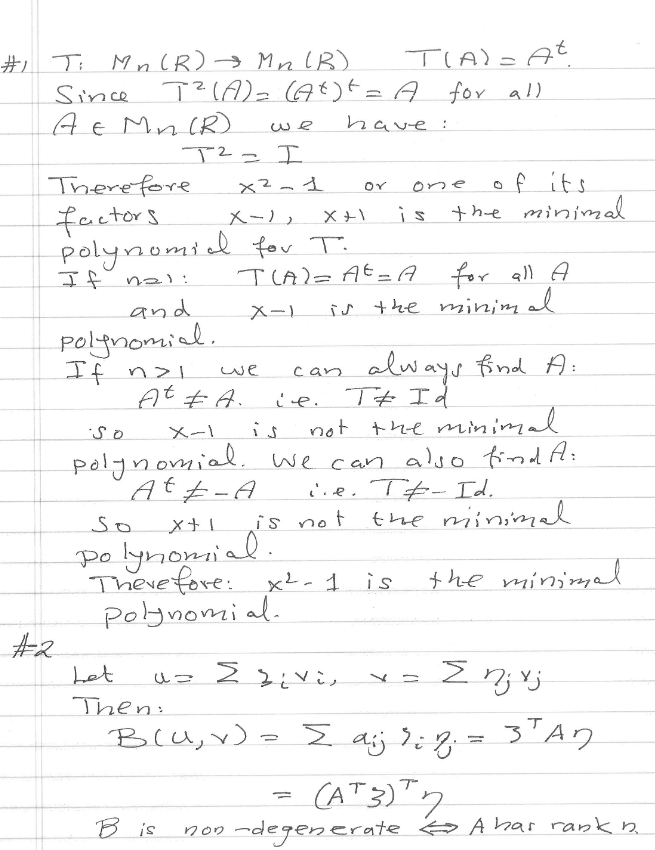 #1 T: Mn(R) → Mn(R) T(A) = Aᵗ.
Since T²(A) = (Aᵗ)ᵗ = A for all
A ∈ Mn(R) we have:
T² = I
Therefore x²-1 or one of its
factors x-1, x+1 is the minimal
polynomial for T.
If n=1: T(A) = Aᵗ = A for all A
and x-1 is the minimal
polynomial.
If n>1 we can always find A:
Aᵗ ≠ A. i.e. T ≠ Id
so x-1 is not the minimal
polynomial. We can also find A:
Aᵗ ≠ -A i.e. T ≠ -Id.
So x+1 is not the minimal
polynomial.
Therefore: x²-1 is the minimal
polynomial.
#2
Let u = Σ ξᵢvᵢ, v = Σ ηⱼvⱼ
Then:
B(u,v) = Σ aᵢⱼ ξᵢ ηⱼ = ξᵀAη
= (Aᵀξ)ᵀη
B is non-degenerate ⇔ A has rank n.